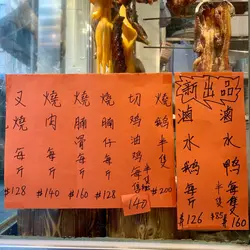 叉燒每斤 $128
燒肉每斤 $140
燒腩骨每斤 $160
燒腩仔每斤 $128
切油鷄每隻
140
燒鵝半隻 $200
新出品
滷水鵝每斤 $126
半隻 $85
滷水鴨每隻 $160